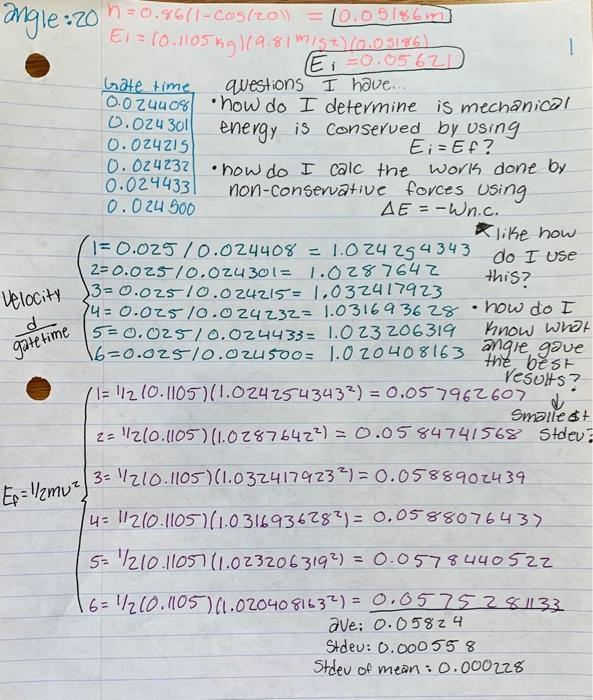 angle: 20
h = 0.86(1-cos(20)) = 0.05186m
Ei = (0.1105kg)(9.81m/s2)(0.05186)
Ei = 0.05621
1
Gate time
0.024408
0.024301
0.024215
0.024232
0.024433
0.024500
questions I have...
• how do I determine is mechanical
energy is conserved by using
Ei = Ef?
• how do I calc the work done by
non-conservative forces using
ΔE = -Wn.c.
* like how
do I use
this?
Velocity
d
gatetime
1= 0.025/0.024408 = 1.024254343
2= 0.025/0.024301= 1.0287642
3= 0.025/0.024215= 1.032417923
4= 0.025/0.024232= 1.031693628
5= 0.025/0.024433= 1.023206319
6= 0.025/0.024500= 1.020408163
• how do I
know what
angle gave
the best
results?
↓
smallest
stdev?
Ef = 1/2mv²
1= 1/2(0.1105)(1.024254343²) = 0.057962607
2= 1/2(0.1105)(1.0287642²) = 0.0584741568
3= 1/2(0.1105)(1.032417923²) = 0.0588902439
4= 1/2(0.1105)(1.031693628²) = 0.0588076437
5= 1/2(0.1105)(1.023206319²) = 0.0578440522
6= 1/2(0.1105)(1.020408163²) = 0.0575281133
ave: 0.05824
Stdev: 0.000558
Stdev of mean: 0.000228